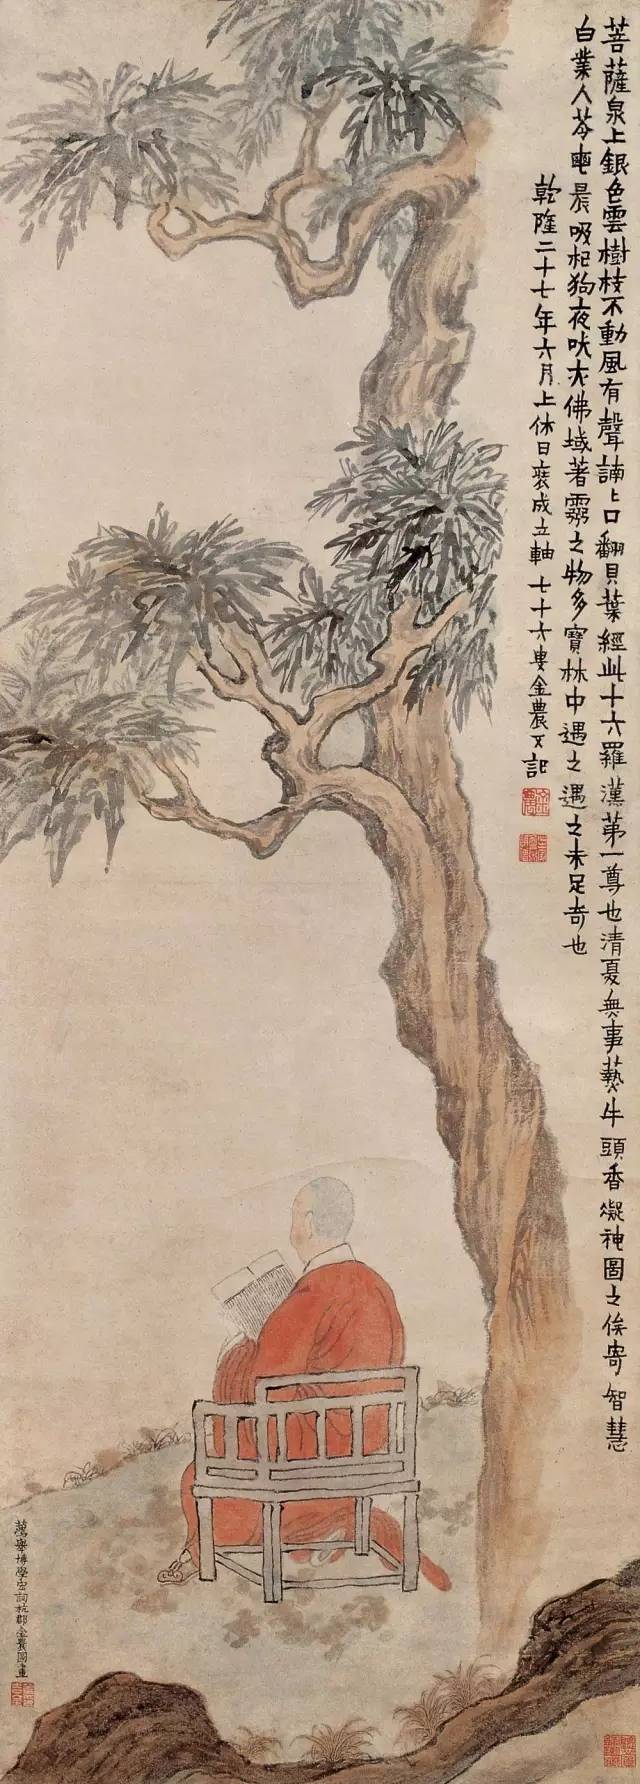 菩薩泉上銀色雲樹枝不動風有聲誦〻口翻貝葉經此十六羅漢第一尊也清夏無事爇牛頭香凝神圖之俟寄智慧
白業人苓亀晨吸杞狗夜吠大佛域著靈之物多寶林中遇之遇之未足奇也
乾隆二十七年六月上休日褎成立軸七十六叟金農又記
薦舉博學宏詞杭郡金農圖畫